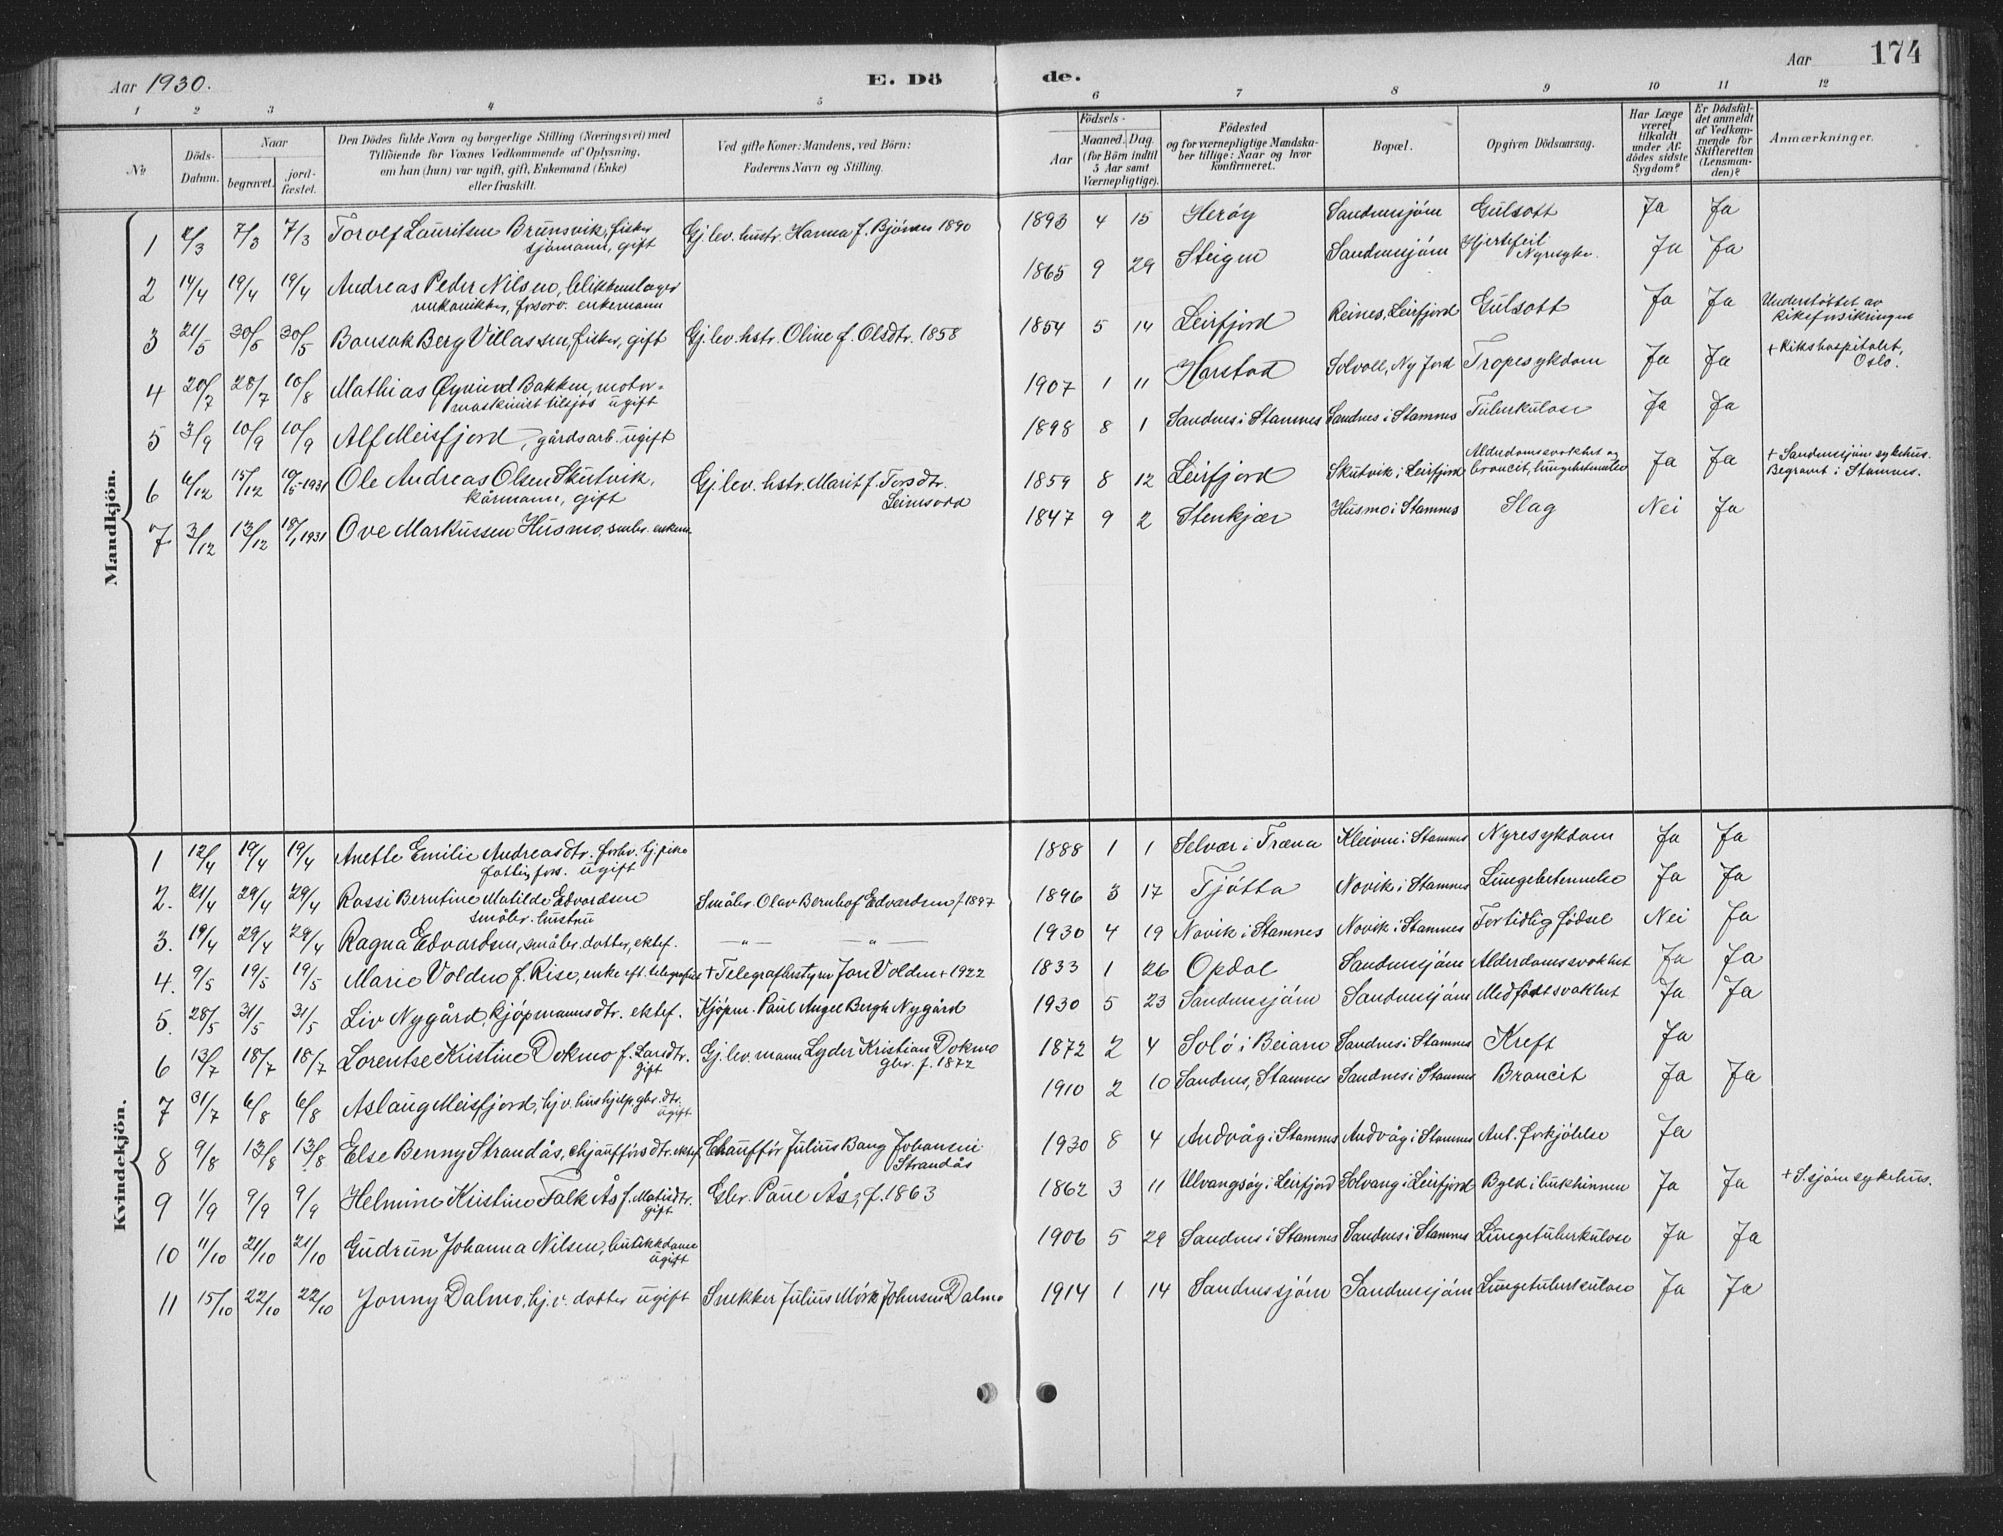 Aar 1930.
E. Dö
de.
Aar
174
1 2 3 4 5 6 7 8 9 10 11 12
No
Döds-Datum.
Naar
begravet.
jord-fæstet.
Den Dödes fulde Navn og borgerlige Stilling (Næringsvei) med
Tilföiende for Voxnes Vedkommende af Oplysning,
om han (hun) var ugift, gift, Enkemand (Enke)
eller fraskilt.
Ved gifte Koner: Mandens, ved Börn:
Faderens Navn og Stilling.
Födsels-
Aar
Maaned. Dag.
(for Börn indtil
5 Aar samt
Værnepligtige).
Födested
og for værnepligtige Mandska-
ber tillige: Naar og hvor
konfirmeret.
Bopæl.
Opgiven Dödsaarsag.
Har Læge
været
tilkaldt
under Af-
dödes sidste
Sygdom?
Er Dödsfal-
det anmeldt
af Vedkom-
mende for
Skifteretten
(Lensman-
den)?
Anmærkninger.
Mandkjön.
1 2/3 7/3 7/3 Torolf Lauritsen Brunsvik, fisker sjömann, gift Gj. lev. hustr. Hanna f. Bjönnes 1890 1893 4 15 Heröy Sandnessjöen Gulsott Ja Ja
2 14/4 19/4 19/4 Andreas Peder Nilsen, blikkenslager mekanikker, forsörv. enkemann 1865 9 29 Steigen Sandnessjöen Hjertefeil Nyresyke. Ja Ja
3 21/5 30/5 30/5 Bousak Berg Villassen, fisker, gift Gj. lev. hstr. Oline f. Olsdtr. 1858 1854 5 14 Leirfjord Reines, Leirfjord Gulsott Ja Ja Understöttet av Riksforsikringen
4 20/7 28/7 10/8 Mathias Öyvind Bakken, motor-maskinist tilsjös ugift 1907 1 11 Harstad Solvoll, Ny Jord Tropesykdom Ja Ja + Rikshospitalet, Oslo.
5 3/9 10/9 10/9 Alf Meisfjord, gårdsarb. ugift 1898 8 1 Sandnes i Stamnes Sandnes i Stamnes Tuberkulose Ja Ja
6 6/12 15/12 10/5-1931 Ole Andreas Olsen Skutvik, kårmann, gift Gj. lev. hstr. Marit f. Torsdtr. Leinsvold 1859 8 12 Leirfjord Skutvik i Leirfjord Alderdomssvakhet og broncit, lungebetendelse Ja Ja + Sandnessjöen sykehus. Begravet i Stamnes.
7 3/12 13/12 18/1 1931 Ove Markussen Husmo, småbr. enkem. 1847 9 2 Stenkjær Husmo i Stamnes Slag Nei Ja
Kvindekjön.
1 12/4 19/4 19/4 Anette Emilie Andreasdtr. forhv. tj. pike fattig fors. ugift 1888 1 1 Selvær i Træna Kleiven i Stamnes Nyresykdom Ja Ja
2. 21/4 29/4 29/4 Rassi Berntine Matilde Edvardsen småbr. hustru Småbr. Olav Bernhof Edvardsen f 1897 1896 3 17 Tjötta Novik i Stamnes Lungebetennelse Ja Ja
3. 19/4 29/4 29/4 Ragna Edvardsen, småbr. dotter, ektef. —"— —"— 1930 4 19 Novik i Stamnes Novik i Stamnes For tidlig födsel Nei Ja
4. 9/5 19/5 19/5 Marie Volden f. Rise, enke eft. telegrafbest + Telegrafbestyrer Jon Volden + 1922 1833 1 26 Opdal Sandnessjöen Alderdomssvakhet Ja Ja
5. 28/5 31/5 31/5 Liv Nygård, kjöpmannsdtr. ektef. Kjöpm. Paul Angel Bergh Nygård 1930 5 23 Sandnessjöen Sandnessjöen Medfödt svakhet Ja Ja
6 13/7 18/7 18/7 Lorentse Kristine Dokmo f. Larsdtr. gift Gj. lev. mann Lyder Kristian Dokmo gbr. f. 1872 1872 2 4 Solö i Beiarn Sandnes i Stamnes Kreft Ja
7 31/7 6/8 6/8 Aslaug Meisfjord, hjv. hushjelp, gbr. dtr. ugift 1910 2 10 Sandnes, Stamnes Sandnes i Stamnes Broncit Ja Ja
8 9/8 13/8 13/8 Else Benny Strandås, chjaufförsdtr. ektef Chaufför Julius Bang Johansen Strandås 1930 8 4 Andvåg i Stamnes Andvåg i Stamnes Ant. forkjölelse Ja
9 1/9 9/9 9/9 Helmine Kristine Falk Ås f. Matiasdtr. gift Gbr. Paul Ås, f. 1863 1862 3 11 Ulvangsöy i Leirfjord Solvang i Leirfjord Byld i bukhinnen Ja Ja + S.sjöen sykehus.
10 11/10 21/10 21/10 Gudrun Johanna Nilsen, butikkdame ugift 1906 5 29 Sandnes i Stamnes Sandnes i Stamnes Lungetuberkulose Ja Ja
11 15/10 22/10 22/10 Jonny Dalmo, hj. v. dotter ugift Snekker Julius Mörk Johnsen Dalmo 1914 1 14 Sandnessjöen Sandnessjöen Lungetuberkulose Ja Ja